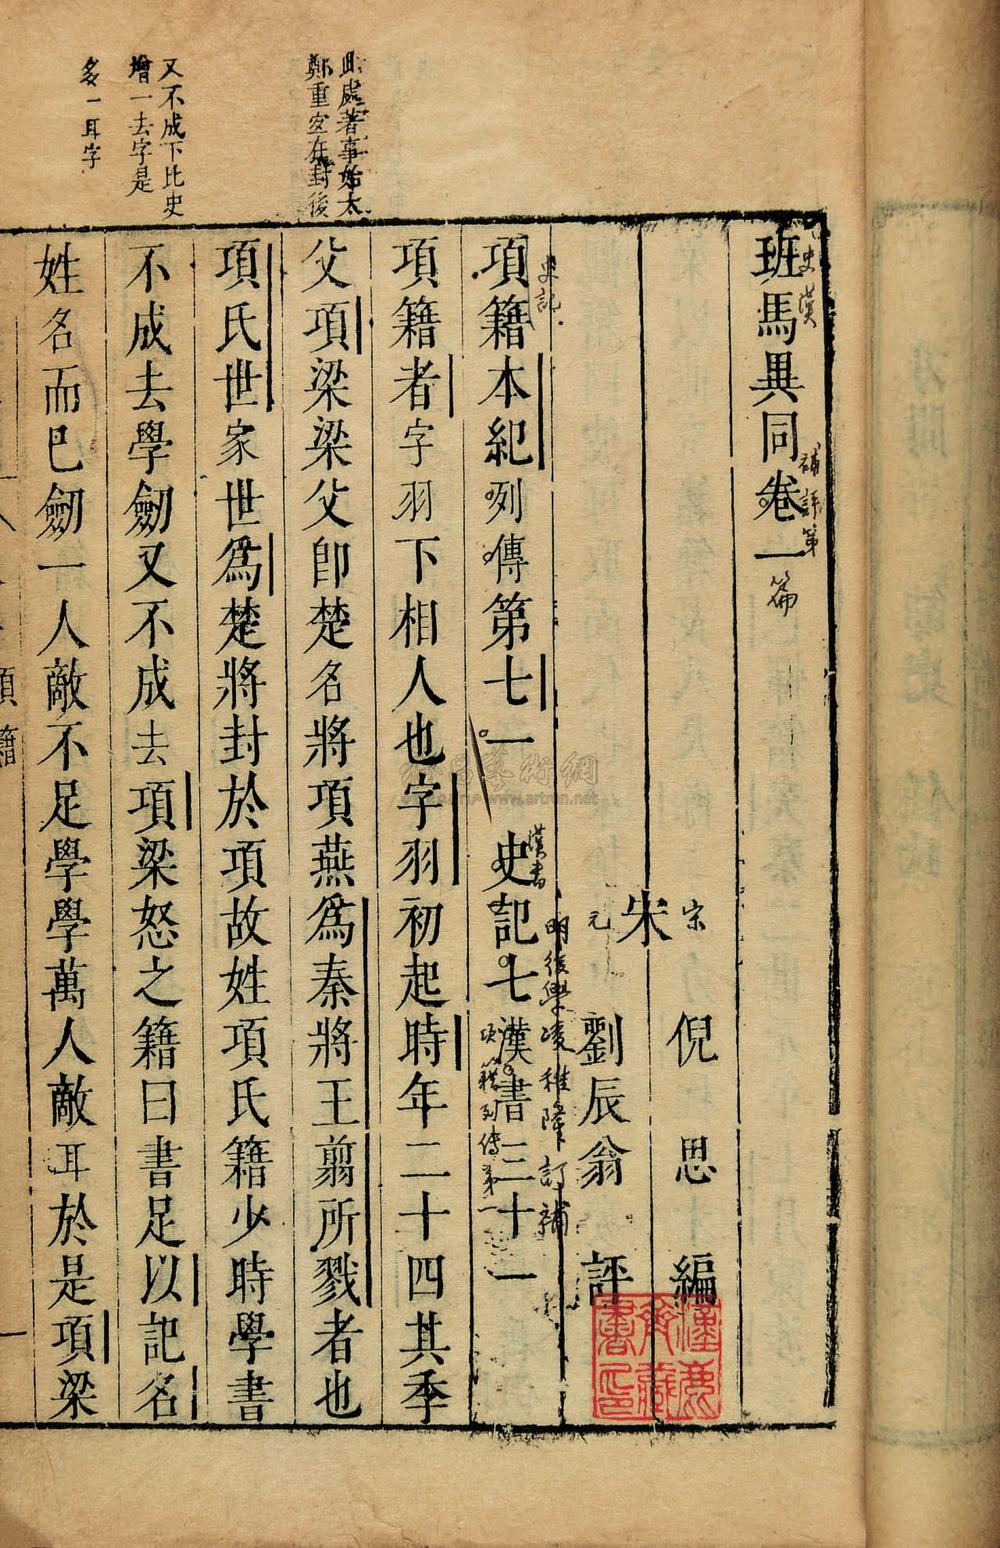 班馬異同卷一
史漢
補評第
篇
宋
倪思編
宋
元
劉辰翁評
明後學凌稚隆訂補
項籍本紀列傳第七一 史記七漢書三十一
史記
漢書
項籍列傳第一
項籍者字羽下相人也字羽初起時年二十四其季
父項梁梁父即楚名將項燕為秦將王翦所戮者也
項氏世家世為楚將封於項故姓項氏籍少時學書
不成去學劒又不成去項梁怒之籍曰書足以記名
姓名而巳劒一人敵不足學學萬人敵耳於是項梁
此處著事始太
鄭重宜在封後
又不成下比史
增一去字是
多一耳字
項籍
雅昌藝術網
www.artron.net